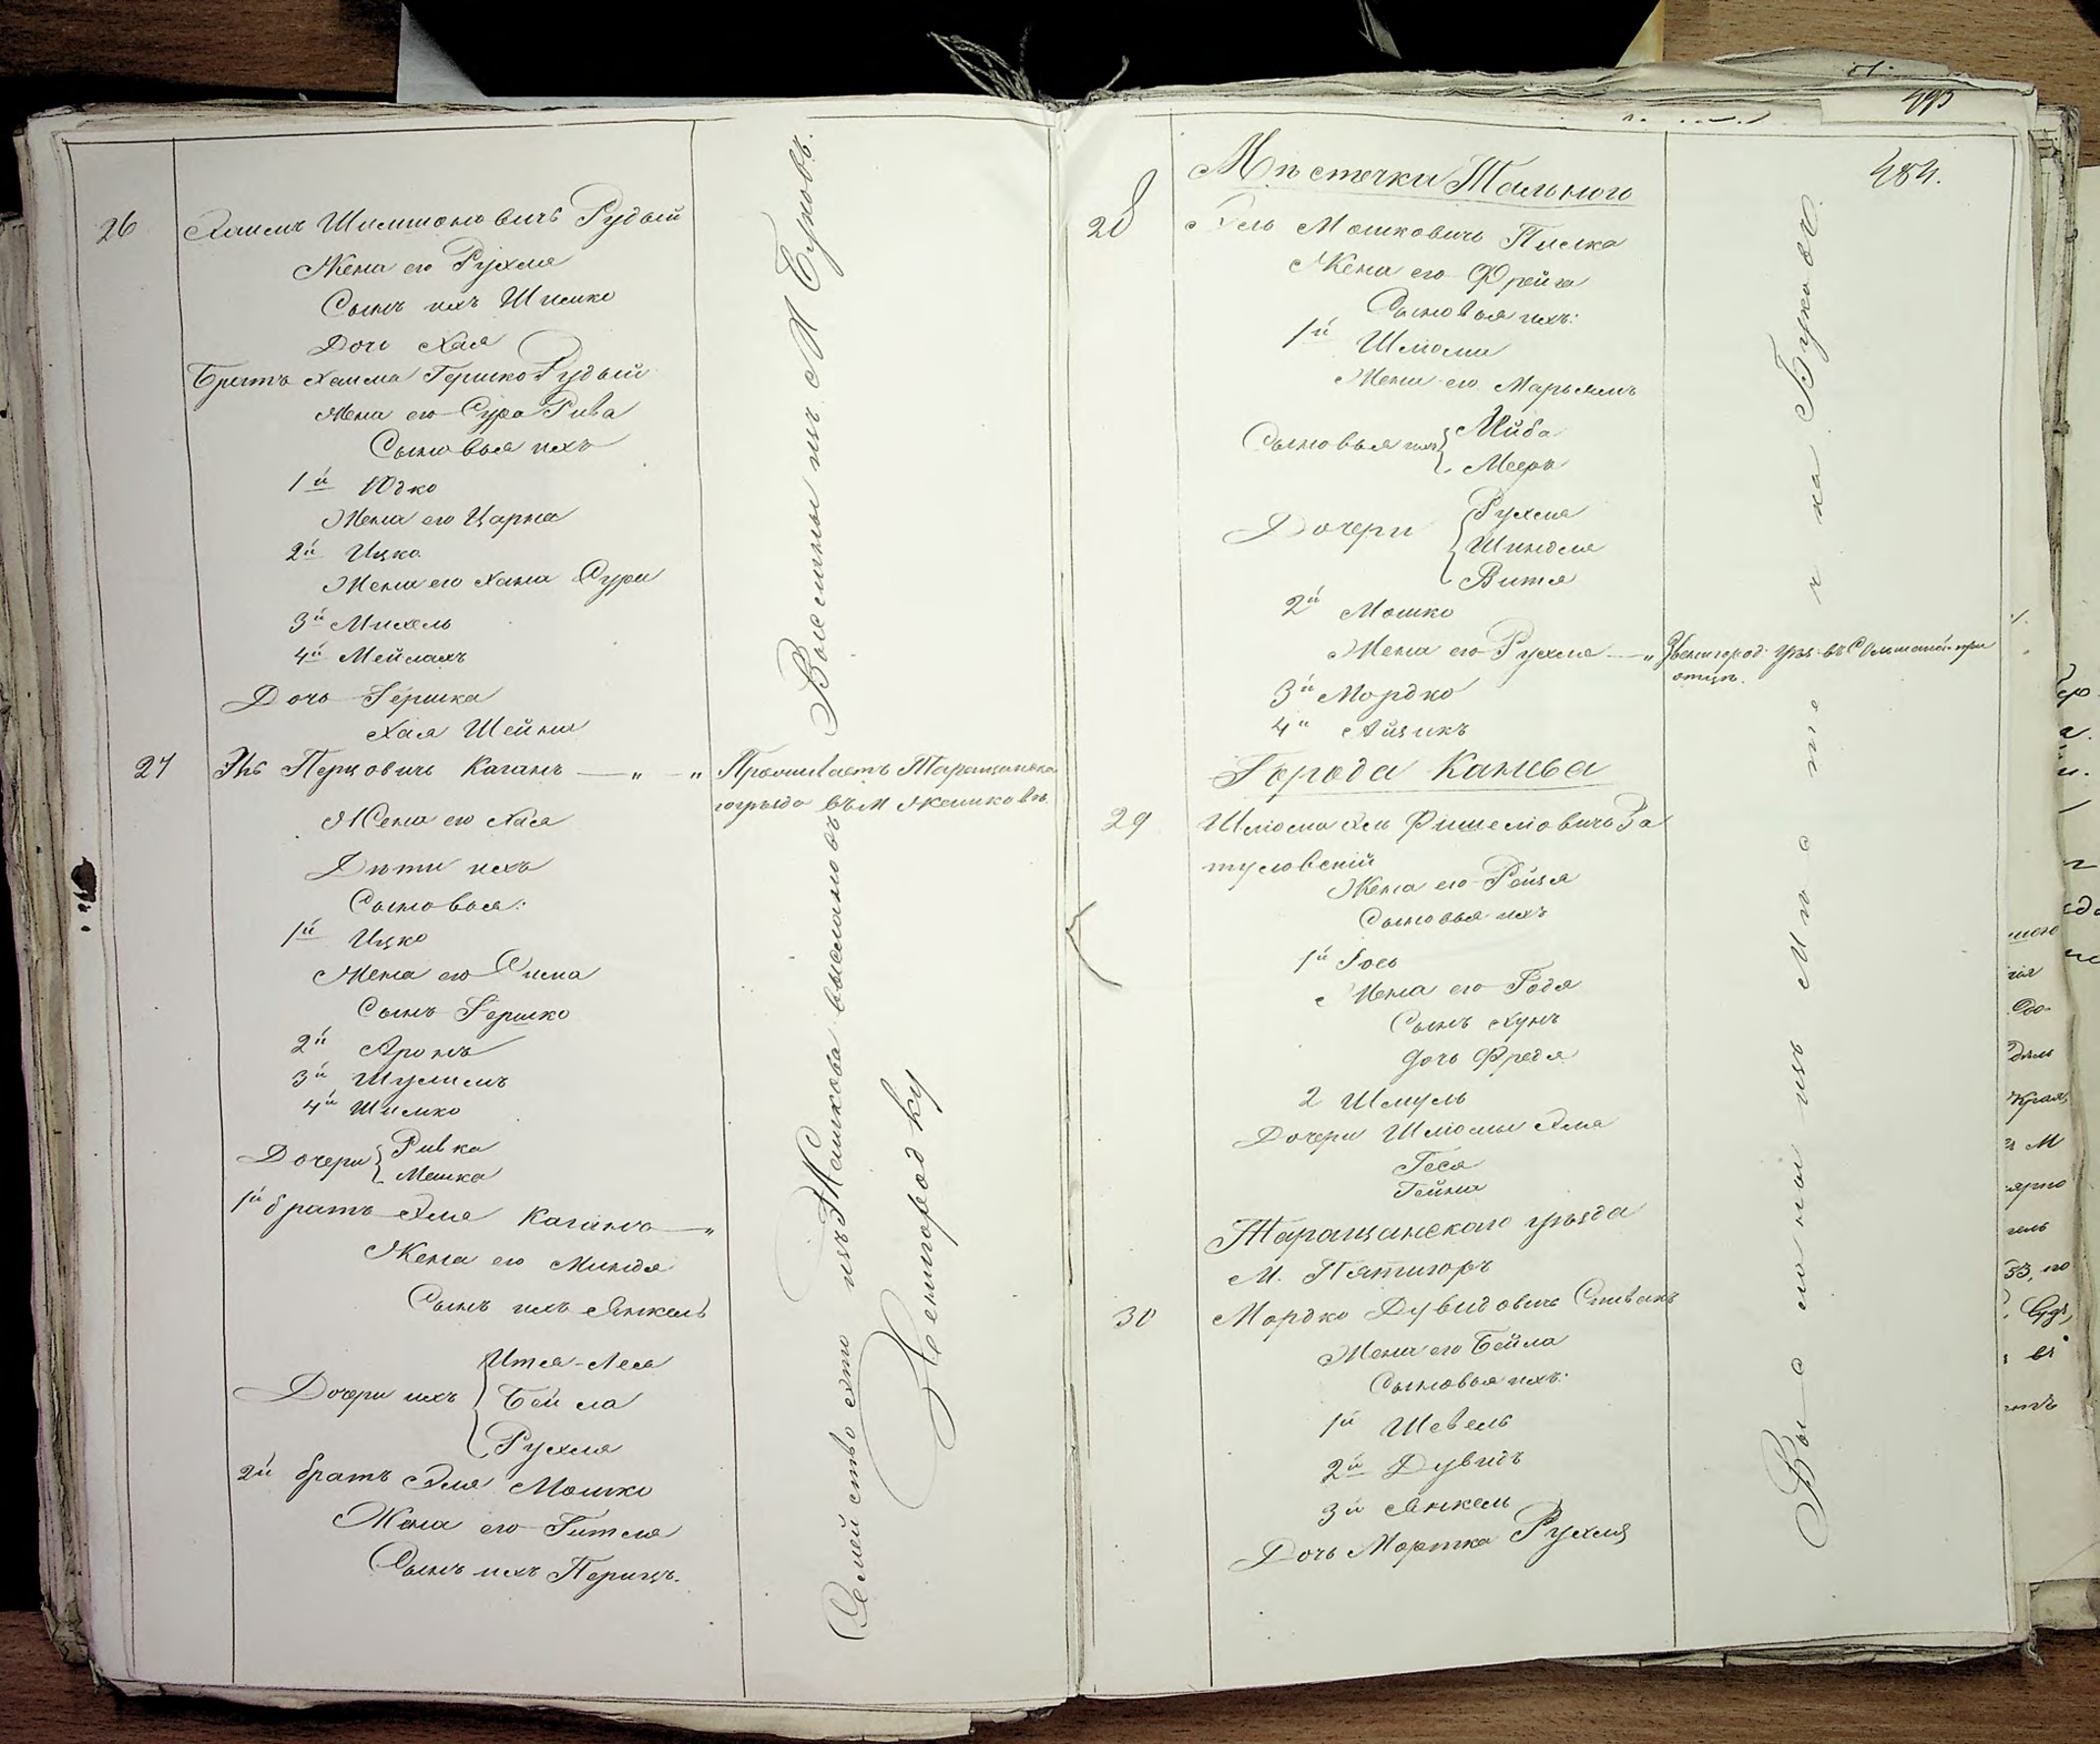 26
Хаимъ Шимшоновичъ Рудый
Жена его Рухля
Сынъ ихъ Шимко
Дочь Хая
Братъ Хаима Гершко Рудый
Жена его Сура Рива
Сыновья ихъ
1й Юдко
Жена его Царна
2й Ицко
Жена его Хана Сура
3й Михель
4й Мейлахъ
Дочь Гершка
Хая Шейна
Высланы изъ М
27
Эль Перцовичъ Каганъ — " — "
Проживаетъ Таращанска
го уѣзда въ М Жашковѣ
Жена его Хая
Дѣти ихъ
Сыновья:
1й Ицко
Жена его Сима
Сынъ Гершко
2й Аронъ
3й Шулимъ
4й Шимко
Дочери { Ривка
Машка
1й братъ Эля Каганъ — "
Жена его Миндя
Сынъ ихъ Янкель
Дочери ихъ { Итя-Лея
Бейла
Рухля
2й братъ Эля Мошко
Жена его Гитля
Сынъ ихъ Перецъ.
Семейство это изъ Жашкова выслано въ
Звенигородку
484.
Мѣстечка Тального
28
Эль Мошковичъ Пилка
Жена его Фрейга
Сыновья ихъ:
1й Шлёма
Жена его Марьямъ
Сыновья ихъ { Лейба
Мееръ
Дочери { Рухля
Шиндля
Витя
2й Мошко
Жена его Рухля — " Звенигород. уѣз. въ Ольшаной при
отцѣ.
3й Мордко
4й Айзикъ
Города Канева
29
Шлёма Эль Фишелёвичъ За
туловскій
Жена его Рейзя
Сыновья ихъ
1й Гось
Жена его Годя
Сынъ Хунъ
Дочь Фредя
2 Шмуль
Дочери Шлёмы Эля
Геся
Гейна
Таращанскаго уѣзда
М. Пятигоръ
30
Мордко Дувидовичъ Спивакъ
Жена его Бейла
Сыновья ихъ:
1й Шевель
2й Дувидъ
3й Янкель
Дочь Мортка Рухля
Высланы изъ Мѣстечка Буковъ.